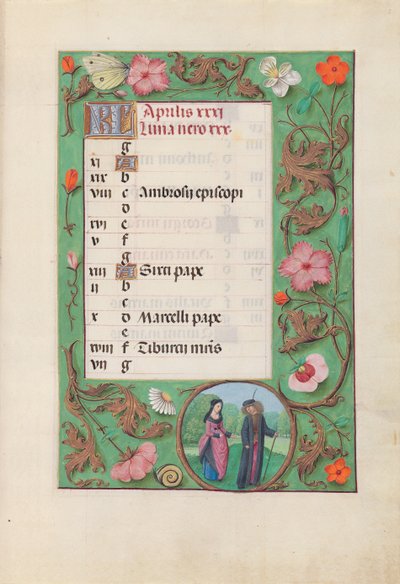 KL Aprilis xxxi
Luna uero xxx.
g
xi A
xix b
viii c Ambrosii episcopi
d
xvi e
v f
g
xiii A Sixti pape
ii b
c
x d Marcelli pape
e
xviii f Tiburcii mris
vii g